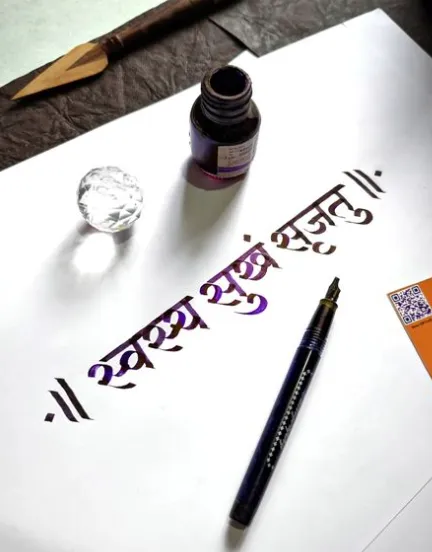 ॥ स्वस्य सुखं सृजतु ॥